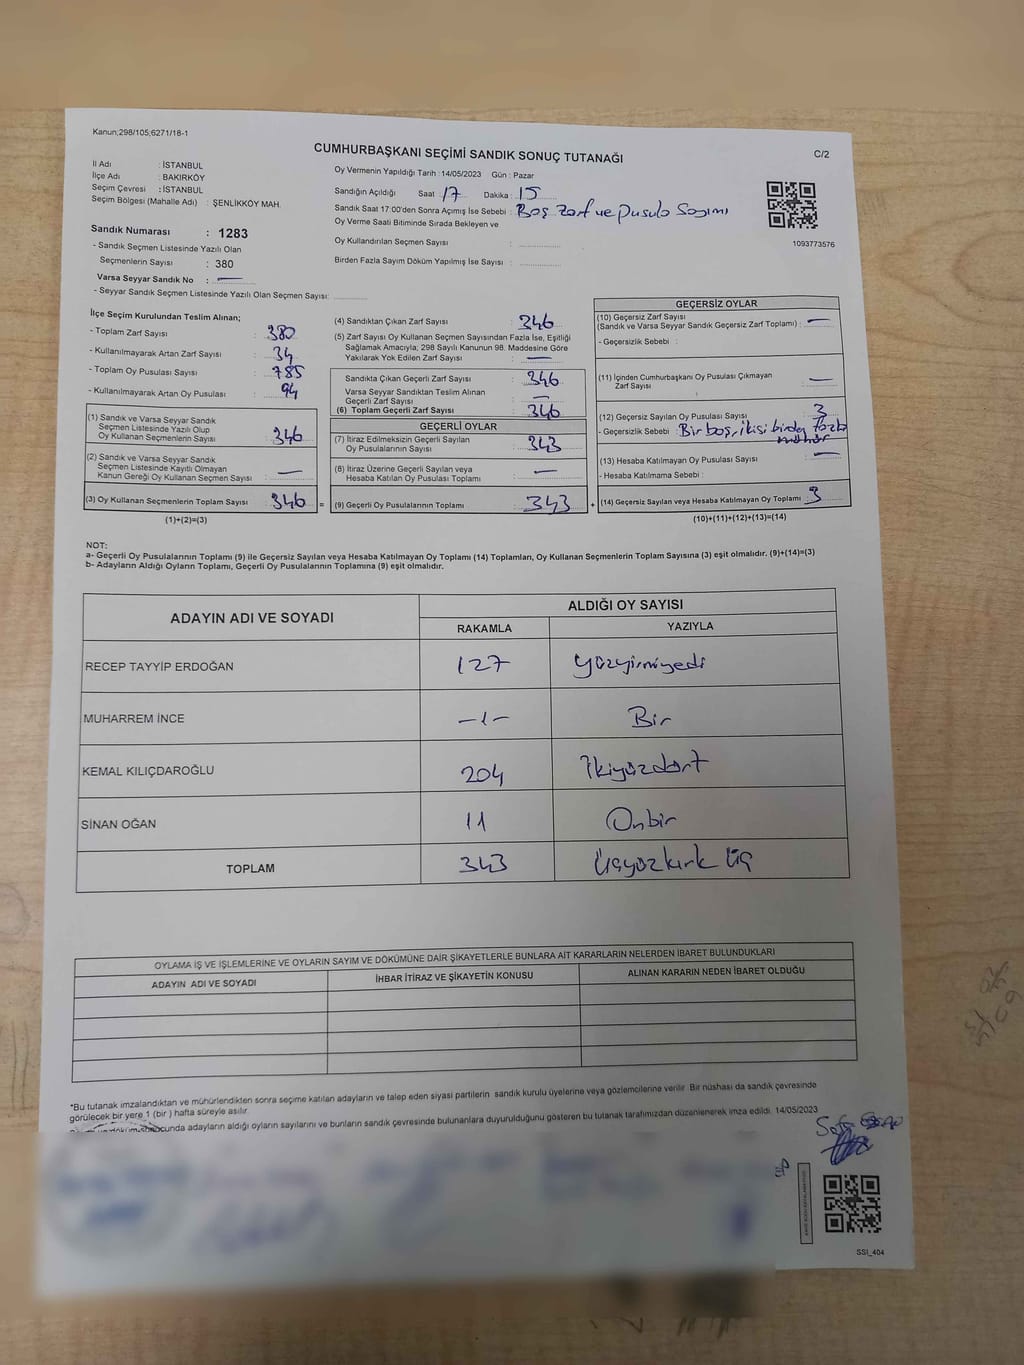 Kanun;298/105;6271/18-1
CUMHURBAŞKANI SEÇİMİ SANDIK SONUÇ TUTANAĞI
C/2
İl Adı : İSTANBUL
İlçe Adı : BAKIRKÖY
Seçim Çevresi : İSTANBUL
Seçim Bölgesi (Mahalle Adı) : ŞENLİKKÖY MAH.
Sandık Numarası : 1283
- Sandık Seçmen Listesinde Yazılı Olan
Seçmenlerin Sayısı : 380
Varsa Seyyar Sandık No : —
- Seyyar Sandık Seçmen Listesinde Yazılı Olan Seçmen Sayısı:
Oy Vermenin Yapıldığı Tarih : 14/05/2023 Gün : Pazar
Sandığın Açıldığı Saat : 17 Dakika : 15
Sandık Saat 17:00'den Sonra Açımış İse Sebebi : Boş Zarf ve Pusula Sayımı
Oy Verme Saati Bitiminde Sırada Bekleyen ve
Oy Kullandırılan Seçmen Sayısı :
Birden Fazla Sayım Döküm Yapılmış İse Sayısı :
1093773576
İlçe Seçim Kurulundan Teslim Alınan;
- Toplam Zarf Sayısı : 380
- Kullanılmayarak Artan Zarf Sayısı : 34
- Toplam Oy Pusulası Sayısı : 785
- Kullanılmayarak Artan Oy Pusulası : 94
(1) Sandık ve Varsa Seyyar Sandık
Seçmen Listesinde Yazılı Olup
Oy Kullanan Seçmenlerin Sayısı : 346
(2) Sandık ve Varsa Seyyar Sandık
Seçmen Listesinde Kayıtlı Olmayan
Kanun Gereği Oy Kullanan Seçmen Sayısı : —
(3) Oy Kullanan Seçmenlerin Toplam Sayısı : 346 =
(1)+(2)=(3)
(4) Sandıktan Çıkan Zarf Sayısı : 346
(5) Zarf Sayısı Oy Kullanan Seçmen Sayısından Fazla İse, Eşitliği
Sağlamak Amacıyla; 298 Sayılı Kanunun 98. Maddesine Göre
Yakılarak Yok Edilen Zarf Sayısı : —
Sandıkta Çıkan Geçerli Zarf Sayısı : 346
Varsa Seyyar Sandıktan Teslim Alınan
Geçerli Zarf Sayısı : —
(6) Toplam Geçerli Zarf Sayısı : 346
GEÇERLİ OYLAR
(7) İtiraz Edilmeksizin Geçerli Sayılan
Oy Pusulalarının Sayısı : 343
(8) İtiraz Üzerine Geçerli Sayılan veya
Hesaba Katılan Oy Pusulası Toplamı : —
(9) Geçerli Oy Pusulalarının Toplamı : 343 +
GEÇERSİZ OYLAR
(10) Geçersiz Zarf Sayısı
(Sandık ve Varsa Seyyar Sandık Geçersiz Zarf Toplamı) : —
- Geçersizlik Sebebi :
(11) İçinden Cumhurbaşkanı Oy Pusulası Çıkmayan
Zarf Sayısı : —
(12) Geçersiz Sayılan Oy Pusulası Sayısı : 3
- Geçersizlik Sebebi : Bir boş, ikisi birden fazla
mühür
(13) Hesaba Katılmayan Oy Pusulası Sayısı : —
- Hesaba Katılmama Sebebi :
(14) Geçersiz Sayılan veya Hesaba Katılmayan Oy Toplamı : 3
(10)+(11)+(12)+(13)=(14)
NOT:
a- Geçerli Oy Pusulalarının Toplamı (9) ile Geçersiz Sayılan veya Hesaba Katılmayan Oy Toplamı (14) Toplamları, Oy Kullanan Seçmenlerin Toplam Sayısına (3) eşit olmalıdır. (9)+(14)=(3)
b- Adayların Aldığı Oyların Toplamı, Geçerli Oy Pusulalarının Toplamına (9) eşit olmalıdır.
ADAYIN ADI VE SOYADI
ALDIĞI OY SAYISI
RAKAMLA YAZIYLA
RECEP TAYYİP ERDOĞAN 127 Yüzyirmiyedi
MUHARREM İNCE —1— Bir
KEMAL KILIÇDAROĞLU 204 İkiyüzdört
SİNAN OĞAN 11 Onbir
TOPLAM 343 Üçyüzkırk üç
OYLAMA İŞ VE İŞLEMLERİNE VE OYLARIN SAYIM VE DÖKÜMÜNE DAİR ŞİKAYETLERLE BUNLARA AİT KARARLARIN NELERDEN İBARET BULUNDUKLARI
ADAYIN ADI VE SOYADI İHBAR İTİRAZ VE ŞİKAYETİN KONUSU ALINAN KARARIN NEDEN İBARET OLDUĞU
*Bu tutanak imzalandıktan ve mühürlendikten sonra seçime katılan adayların ve talep eden siyasi partilerin sandık kurulu üyelerine veya gözlemcilerine verilir. Bir nüshası da sandık çevresinde
görülecek bir yere 1 (bir ) hafta süreyle asılır.
adayların aldığı oyların sayılarını ve bunların sandık çevresinde bulunanlara duyurulduğunu gösteren bu tutanak tarafımızdan düzenlenerek imza edildi. 14/05/2023
SSI_404